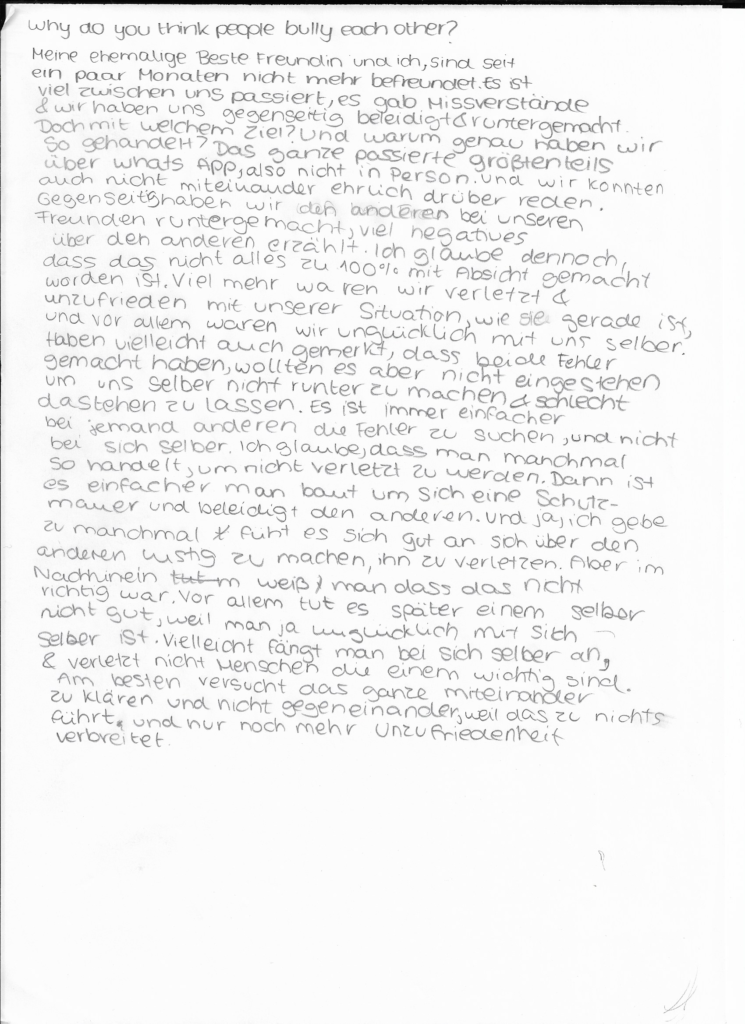 Why do you think people bully each other?
Meine ehemalige Beste Freundin und ich, sind seit
ein paar Monaten nicht mehr befreundet. Es ist
viel zwischen uns passiert, es gab Missverstände
& wir haben uns gegenseitig beleidigt & runtergemacht.
Doch mit welchem Ziel? Und warum genau haben wir
so gehandelt? Das ganze passierte größtenteils
über Whats App, also nicht in Person. Und wir konnten
auch nicht miteinander ehrlich drüber reden.
Gegenseitig haben wir den anderen bei unseren
Freunden runtergemacht, viel negatives
über den anderen erzählt. Ich glaube dennoch,
dass das nicht alles zu 100% mit Absicht gemacht
worden ist. Viel mehr waren wir verletzt &
unzufrieden mit unserer Situation, wie sie gerade ist,
und vor allem waren wir unglücklich mit uns selber.
Haben vielleicht auch gemerkt, dass beide Fehler
gemacht haben, wollten es aber nicht eingestehen
um uns selber nicht runter zu machen & schlecht
dastehen zu lassen. Es ist immer einfacher
bei jemand anderen die Fehler zu suchen, und nicht
bei sich selber. Ich glaube, dass man manchmal
so handelt, um nicht verletzt zu werden. Dann ist
es einfacher man baut um sich eine Schutz-
mauer und beleidigt den anderen. Und ja, ich gebe
zu manchmal fühlt es sich gut an sich über den
anderen lustig zu machen, ihn zu verletzen. Aber im
Nachhinein tut m weiß man dass das nicht
richtig war. Vor allem tut es später einem selber
nicht gut, weil man ja unglücklich mit sich
selber ist. Vielleicht fängt man bei sich selber an,
& verletzt nicht Menschen die einem wichtig sind.
Am besten versucht das ganze miteinander
zu klären und nicht gegeneinander, weil das zu nichts
führt, und nur noch mehr Unzufriedenheit
verbreitet.